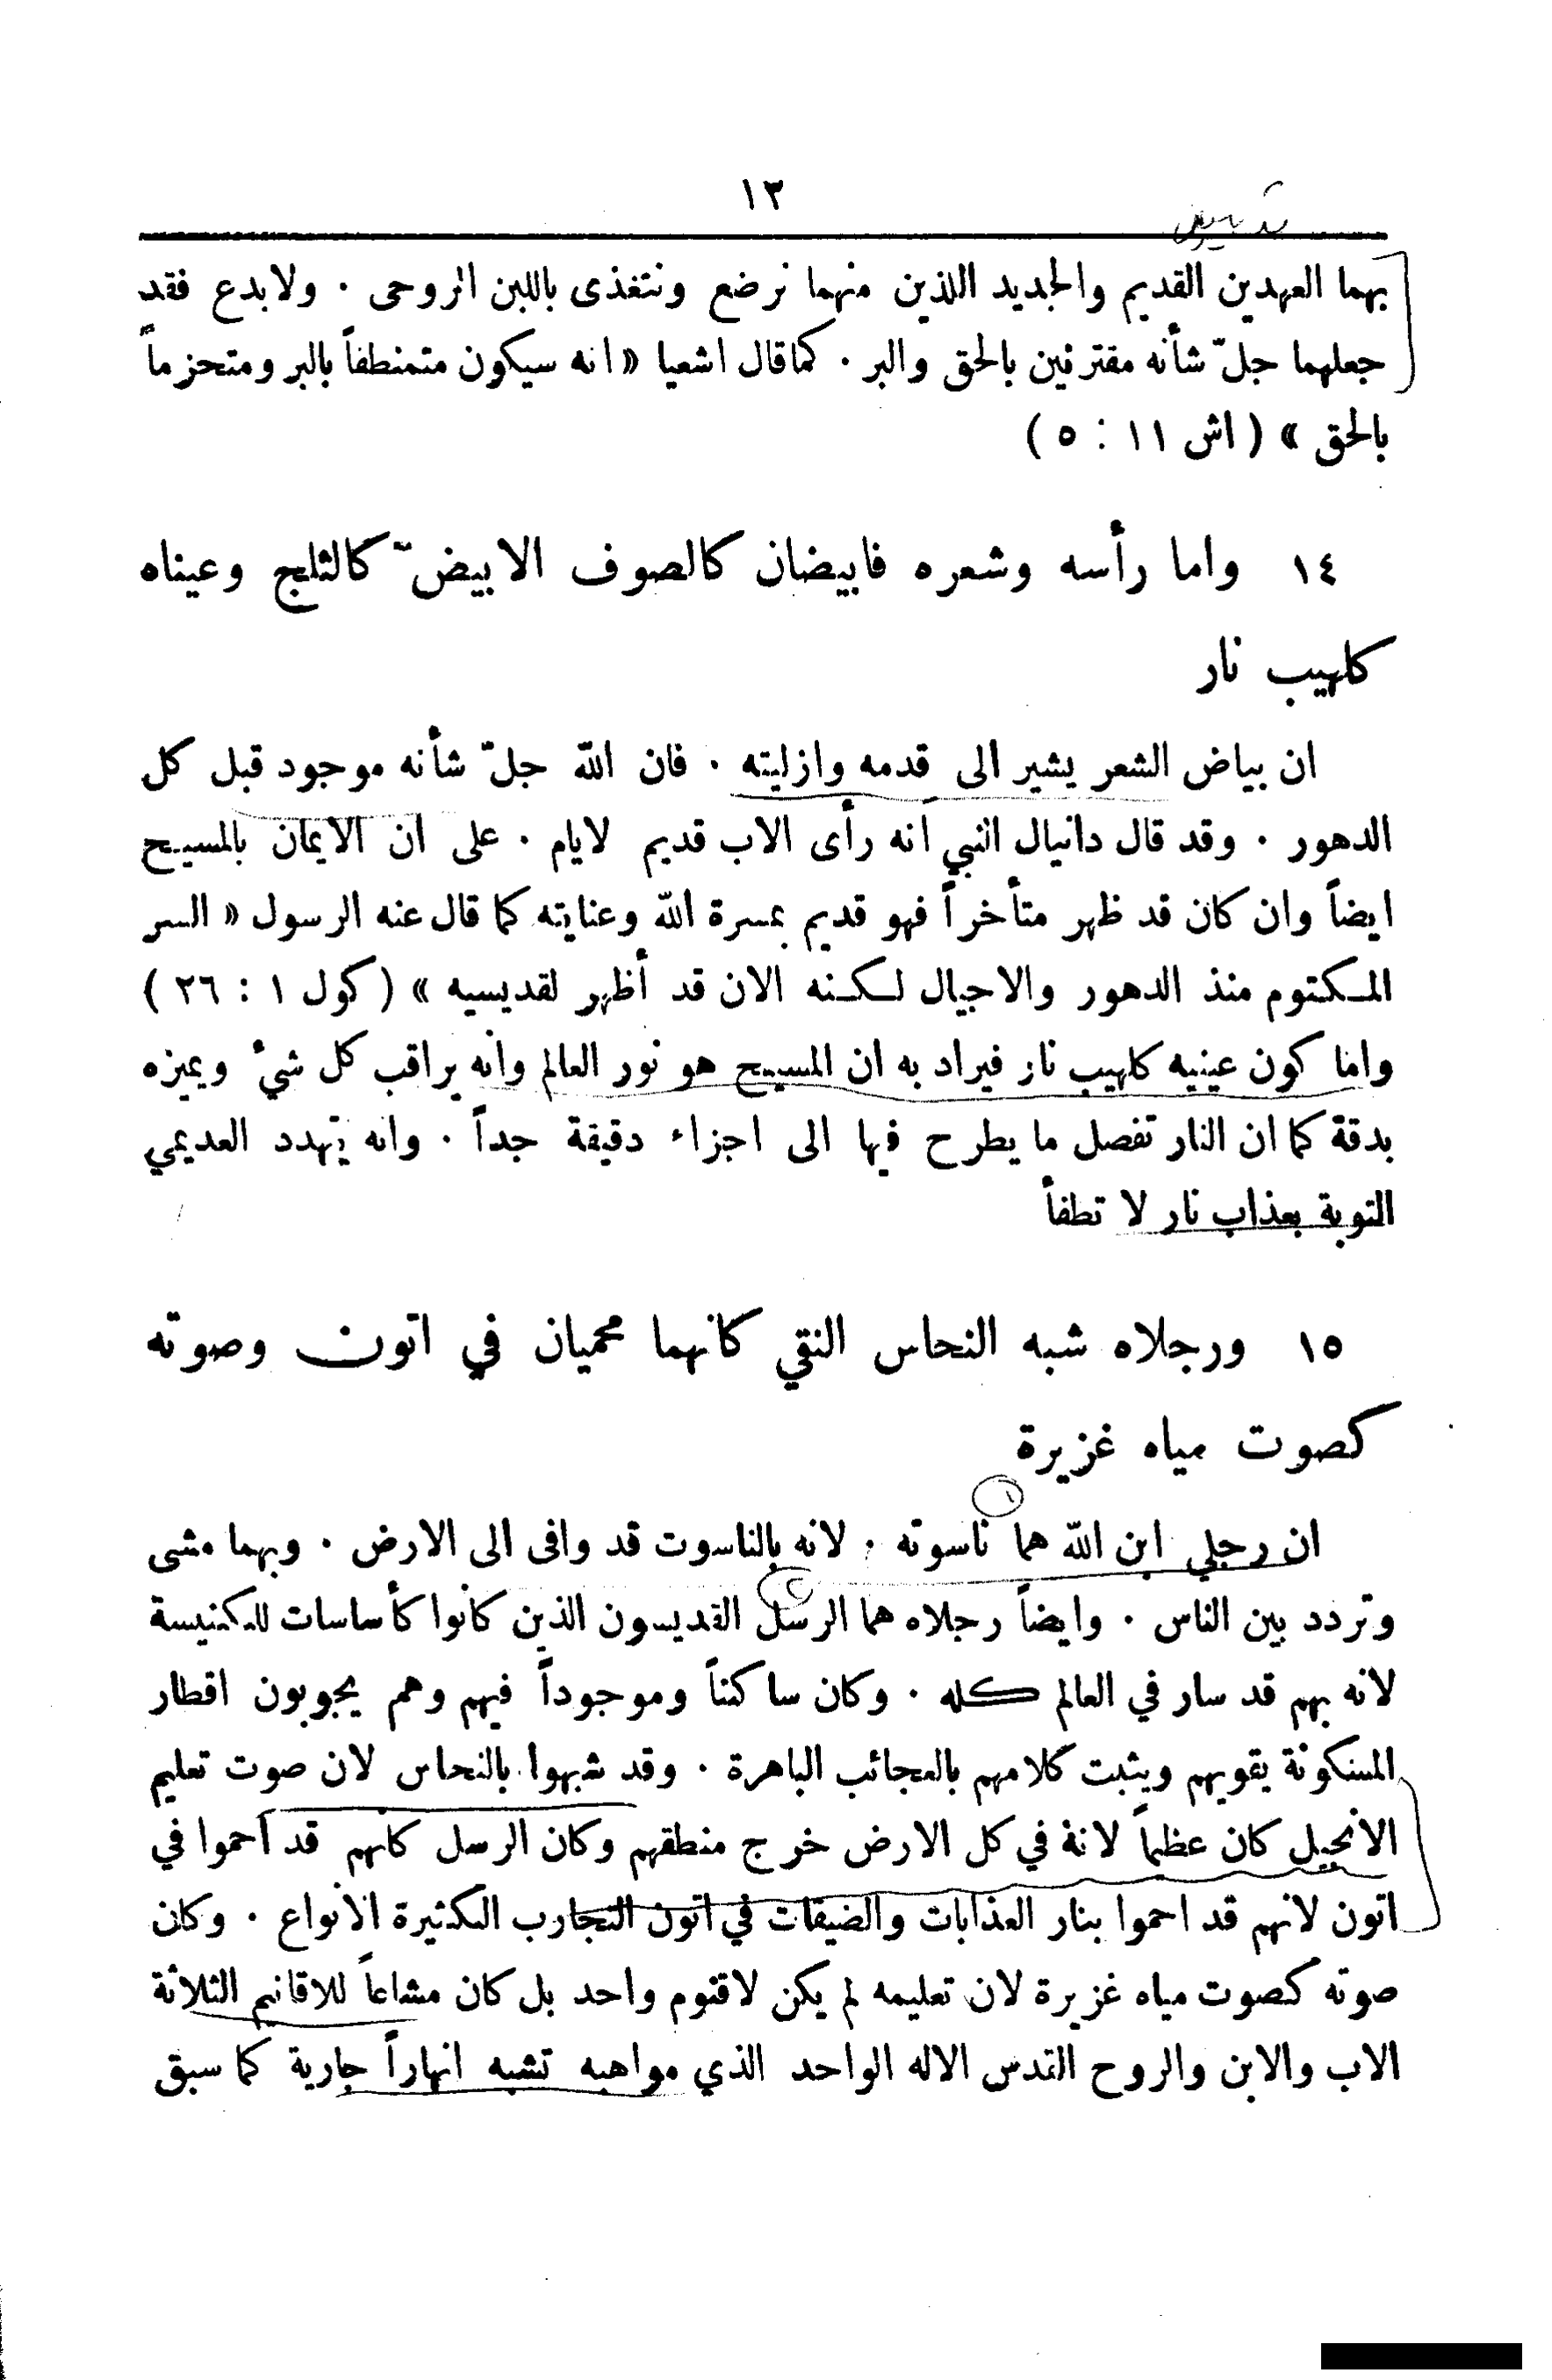 ١٣
بهما العهدين القديم والجديد اللذين منهما نرضع ونتغذى باللبن الروحى . ولا بدع فقد
جعلهما جلّ شأنه مقترنين بالحق والبر . كما قال اشعيا « انه سيكون متمنطقاً بالبر ومتحزماً
بالحق » ( اش ١١ : ٥ )
١٤ واما رأسه وشعره فابيضان كالصوف الابيض كالثلج وعيناه
كلهيب نار
ان بياض الشعر يشير الى قدمه وازليته . فان الله جلّ شأنه موجود قبل كل
الدهور . وقد قال دانيال النبي انه رأى الاب قديم لايام . على ان الايمان بالمسيح
ايضاً وان كان قد ظهر متأخراً فهو قديم بمسرة الله وعنايته كما قال عنه الرسول « السر
المكتوم منذ الدهور والاجيال لكنه الان قد أظهر لقديسيه » ( كول ١ : ٢٦ )
واما كون عينيه كلهيب نار فيراد به ان المسيح هو نور العالم وانه يراقب كل شيء ويميزه
بدقة كما ان النار تفصل ما يطرح فيها الى اجزاء دقيقة جداً . وانه يتهدد العديمي
التوبة بعذاب نار لا تطفأ
١٥ ورجلاه شبه النحاس النقي كانهما محميان في اتون وصوته
كصوت مياه غزيرة
١
ان رجلي ابن الله هما ناسوته . لانه بالناسوت قد وافى الى الارض . وبهما مشى
٢
وتردد بين الناس . وايضاً رجلاه هما الرسل القديسون الذين كانوا كأساسات للكنيسة
لانه بهم قد سار في العالم كله . وكان ساكناً وموجوداً فيهم وهم يجوبون اقطار
المسكونة يقويهم ويثبت كلامهم بالعجائب الباهرة . وقد شبهوا بالنحاس لان صوت تعليم
الانجيل كان عظيماً لانة في كل الارض خرج منطقهم وكان الرسل كانهم قد احموا في
اتون لانهم قد احموا بنار العذابات والضيقات في اتون التجارب الكثيرة الانواع . وكان
صوته كصوت مياه غزيرة لان تعليمه لم يكن لاقنوم واحد بل كان مشاعاً للاقانيم الثلاثة
الاب والابن والروح القدس الاله الواحد الذي مواهبه تشبه انهاراً جارية كما سبق